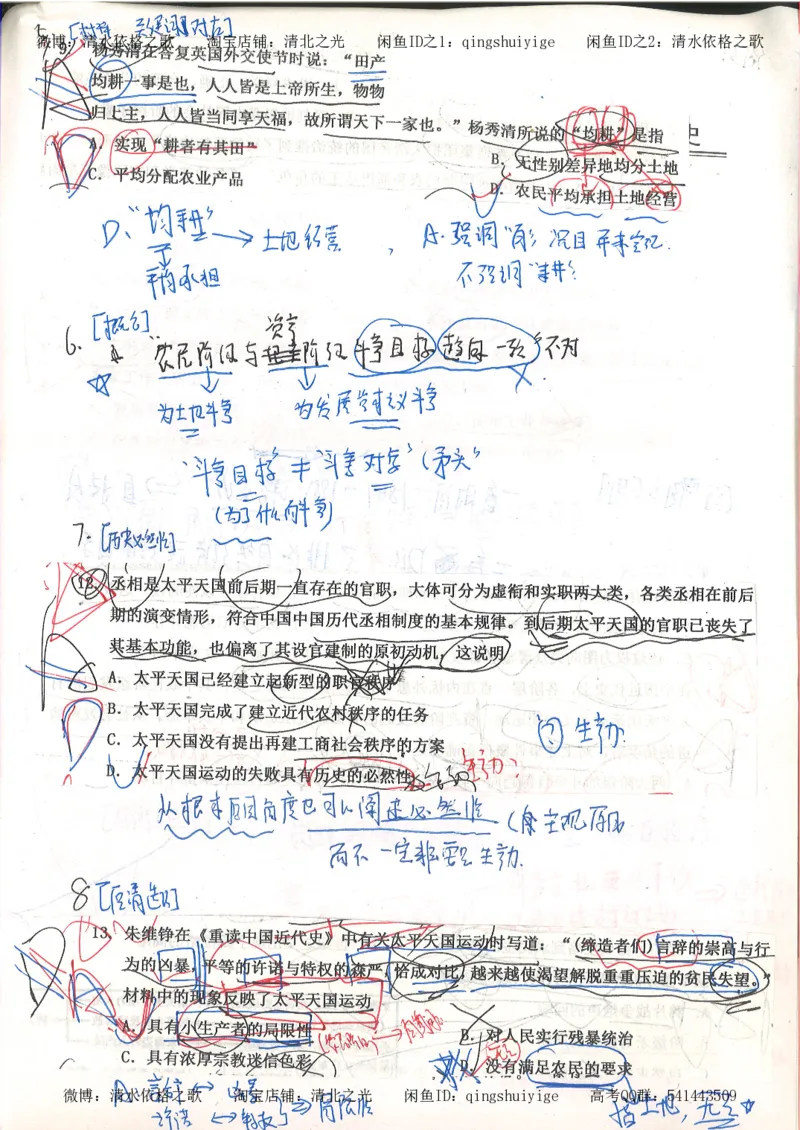 微博：清水依格之歌 淘宝店铺：清北之光 闲鱼ID之1：qingshuiyige 闲鱼ID之2：清水依格之歌
9. 杨秀清在答复英国外交使节时说：“田产
均耕一事是也，人人皆是上帝所生，物物
归上主，人人皆当同享天福，故所谓天下一家也。”杨秀清所说的“均耕”是指
A．实现“耕者有其田”
B．无性别差异地均分土地
C．平均分配农业产品
D．农民平均承担土地经营
D、“均耕” → 土地经营，A.强调“有”
平均承担
不强调“耕”
6. [概念]
“农民阶级与资产阶级斗争目标趋向一致”不对
为土地斗争
为发展资本主义斗争
“斗争目标”≠“斗争对象”（矛头）
（为了什么而斗争）
7. [历史必然性]
12. 丞相是太平天国前后期一直存在的官职，大体可分为虚衔和实职两大类，各类丞相在前后
期的演变情形，符合中国中国历代丞相制度的基本规律。到后期太平天国的官职已丧失了
其基本功能，也偏离了其设官建制的原初动机，这说明
A．太平天国已经建立起新型的职官秩序
B．太平天国完成了建立近代农村秩序的任务
C．太平天国没有提出再建工商社会秩序的方案
D．太平天国运动的失败具有历史的必然性
从根本原因角度也可以阐述必然性
而不一定非要
8
13. 朱维铮在《重读中国近代史》中有关太平天国运动时写道：“（缔造者们）言辞的崇高与行
为的凶暴，平等的许诺与特权的森严，恰成对比，越来越使渴望解脱重重压迫的贫民失望。”
材料中的现象反映了太平天国运动
A．具有小生产者的局限性
B．对人民实行残暴统治
C．具有浓厚宗教迷信色彩
D．没有满足农民的要求
微博：清水依格之歌 淘宝店铺：清北之光 闲鱼ID：qingshuiyige 高考QQ群：541443509